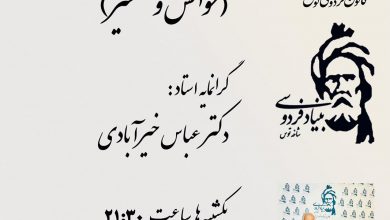 (خوانش و تفسیر)
گرانمایه استاد:
دکتر عباس خیرآبادی
یکشنبه‌ها ساعت ۲۱:۳۰
کانون فردوسی توس
بنیاد فردوسی
شاخه توس